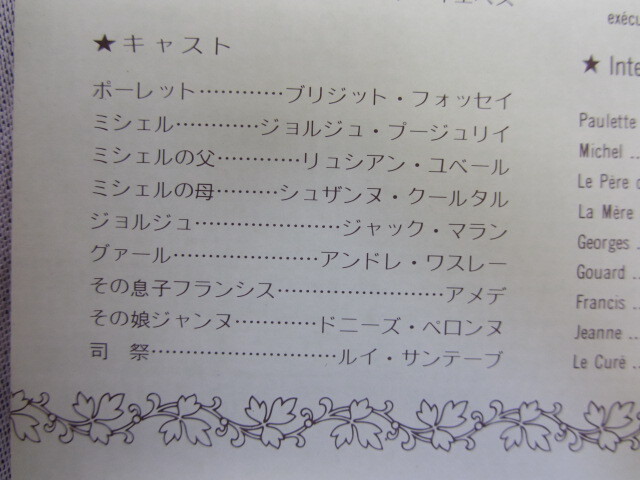 ★キャスト
ポーレット…………ブリジット・フォッセイ
ミシェル…………ジョルジュ・プージュリイ
ミシェルの父…………リュシアン・ユベール
ミシェルの母………シュザンヌ・クールタル
ジョルジュ…………………ジャック・マラン
グァール…………………アンドレ・ワスレー
その息子フランシス……………………アメデ
その娘ジャンヌ…………ドニーズ・ペロンヌ
司 祭………………………ルイ・サンテーブ
exécu
★ Inte
Paulette
Michel ..
Le Père
La Mère
Georges ..
Gouard ..
Francis ..
Jeanne ..
Le Curé ..